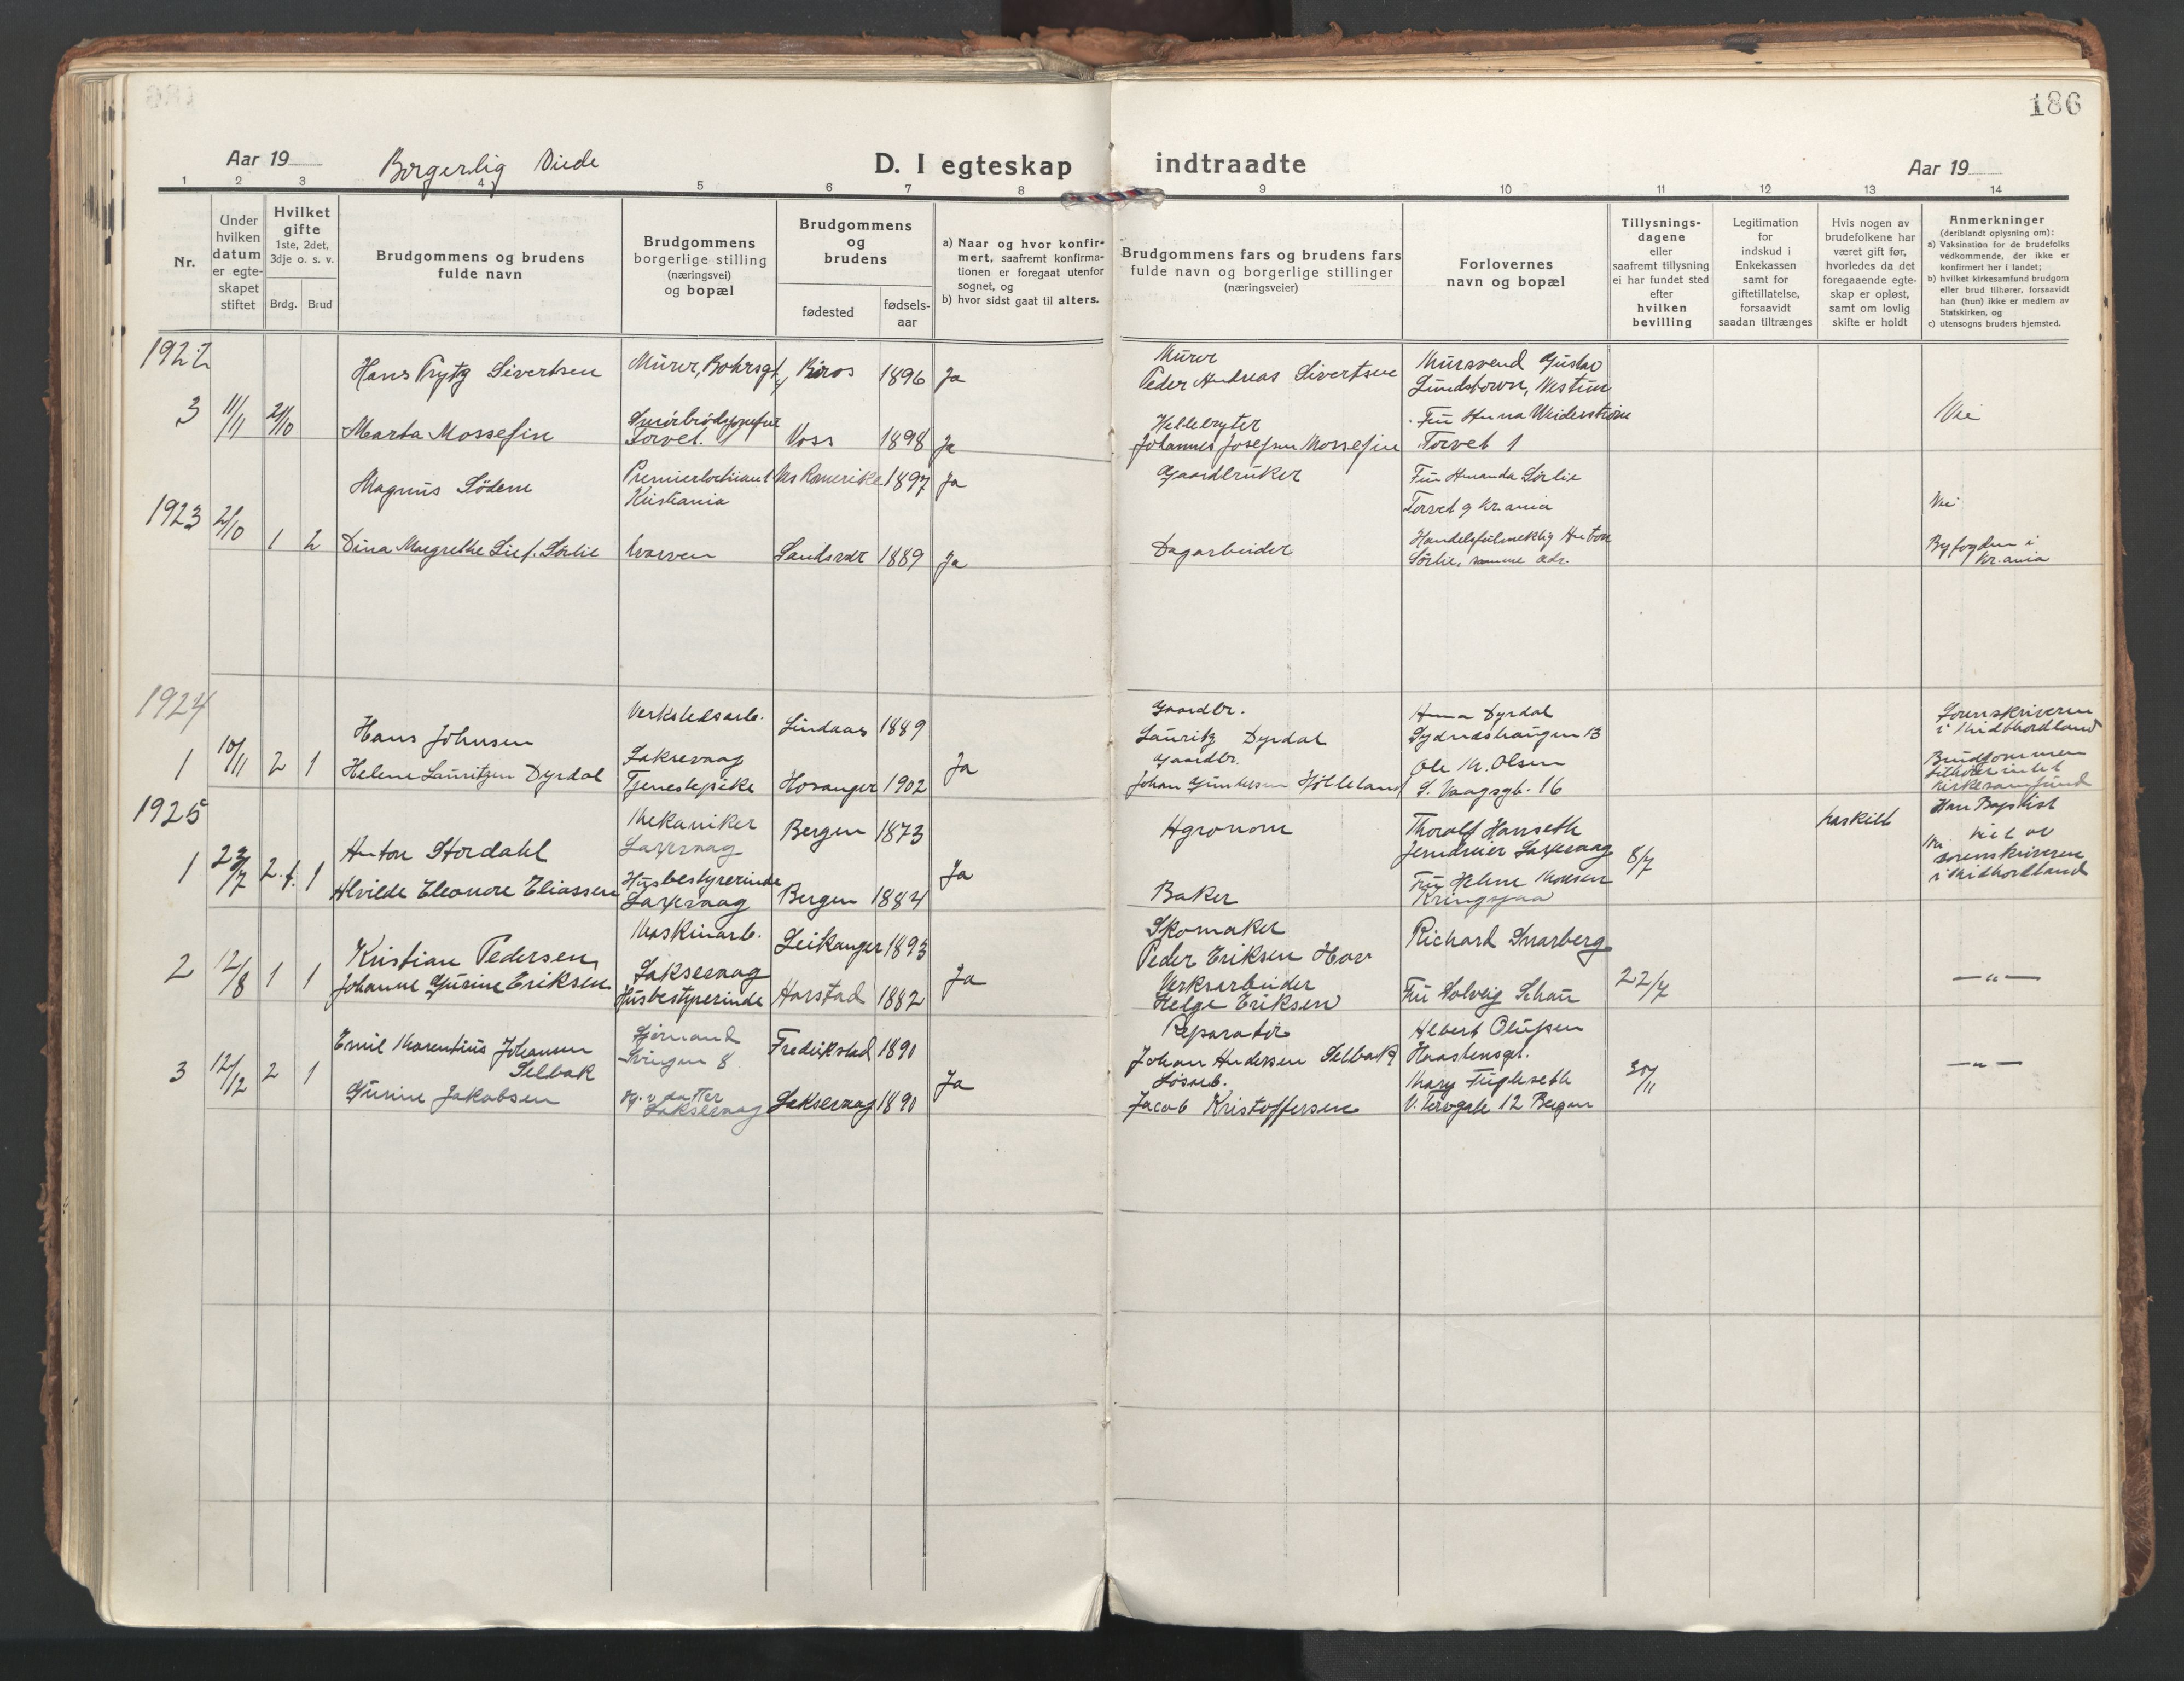 186
Aar 19
Borgerlig Viede
D. I egteskap
indtraadte
Aar 19
1 2 3 4 5 6 7 8 9 10 11 12 13 14
Nr.
Under
hvilken
datum
er egte-
skapet
stiftet
Hvilket
gifte
1ste, 2det,
3dje o. s. v.
Brdg. Brud
Brudgommens og brudens
fulde navn
Brudgommens
borgerlige stilling
(næringsvei)
og bopæl
Brudgommens
og
brudens
fødested
fødsels-
aar
a) Naar og hvor konfir-
mert, saafremt konfirma-
tionen er foregaat utenfor
sognet, og
b) hvor sidst gaat til alters.
Brudgommens fars og brudens fars
fulde navn og borgerlige stillinger
(næringsveier)
Forlovernes
navn og bopæl
Tillysnings-
dagene
eller
saafremt tillysning
ei har fundet sted
efter
hvilken
bevilling
Legitimation
for
indskud i
Enkekassen
samt for
giftetillatelse,
forsaavidt
saadan tiltrænges
Hvis nogen av
brudefolkene har
været gift før,
hvorledes da det
foregaaende egte-
skap er opløst,
samt om lovlig
skifte er holdt
Anmerkninger
(deriblandt oplysning om):
a) Vaksination for de brudefolks
vedkommende, der ikke er
konfirmert her i landet;
b) hvilket kirkesamfund brudgom
eller brud tilhører, forsaavidt
han (hun) ikke er medlem av
Statskirken, og
c) utensogns bruders hjemsted.
1922
3 11/11
Hans Trytg Sivertsen
Murer, Bohrsgt. 4
Røros 1896 Ja
Murer
Peder Andreas Sivertsen
Mursvend Gustav
Marta Mossefin
Torvet.
Voss 1898 Ja
Johannes Josefsen Mossefin
Fru Anna Weiderstrøm
Torvet 1
1923
Magnus Sødem
Premierløitnant
Kristiania
Romerike 1897 Ja
Gaardbruker
Fru Amanda Sörlie
Torvet 9 Kr.ania
1 2
Dina Margrethe Sörlie
Sandsvær 1889 Ja
Dagarbeider
Sörlie, samme adr.
Byfogden i
Kr.ania
1924
1 10/11 2 1
Hans Johnsen
Verkstedsarb.
Laksevaag
Lindaas 1889
Gaardbr.
Lauritz Dyrdal
Anna Dyrdal
Sydneshaugen 13
Sorenskriveren
i Midthordland
Helene Lauritzen Dyrdal
Tjenestepike
Hosanger 1902 Ja
Gaardbr.
Johan Hölleland
Ole M. Olsen
S. Vaagsgt. 16
Brudgommen
tilhører intet
kirkesamfund
1925
1 23/7 2. f. 1
Anton Stordahl
Mekaniker
Laxevaag
Bergen 1873
Agronom
Thoralf Hanseth
Laxevaag
8/7
fraskilt
Han Baptist
Alvilde Eleonore Eliassen
Husbestyrerinde
Laxevaag
Bergen 1884 Ja
Baker
Fru Helene Monsen
Kringsjaa
sorenskriveren
i Midhordland
2 12/8 1 1
Kristian Pedersen
Maskinarb.
Laksevaag
Leikanger 1893
Skomaker
Peder Eriksen Hov
Richard Snarberg
Johanne Gurine Eriksen
Husbestyrerinde
Harstad 1882 Ja
Verksarbeider
Helge Eriksen
Fru Solveig Schau
22/7
— " —
3 12/12 2 1
Emil Marentius Johansen
Selbak
Sjömand
Svingen 8
Fredrikstad 1890
Reparatör
Johan Andersen Selbak
Albert Olufsen
Haastensgt.
Gurine Jakobsen
Laksevaag
Laksevaag 1890 Ja
Jacob Kristoffersen
Mary Fugleseth
V. Torvgate 12 Bergen
30/11
— " —